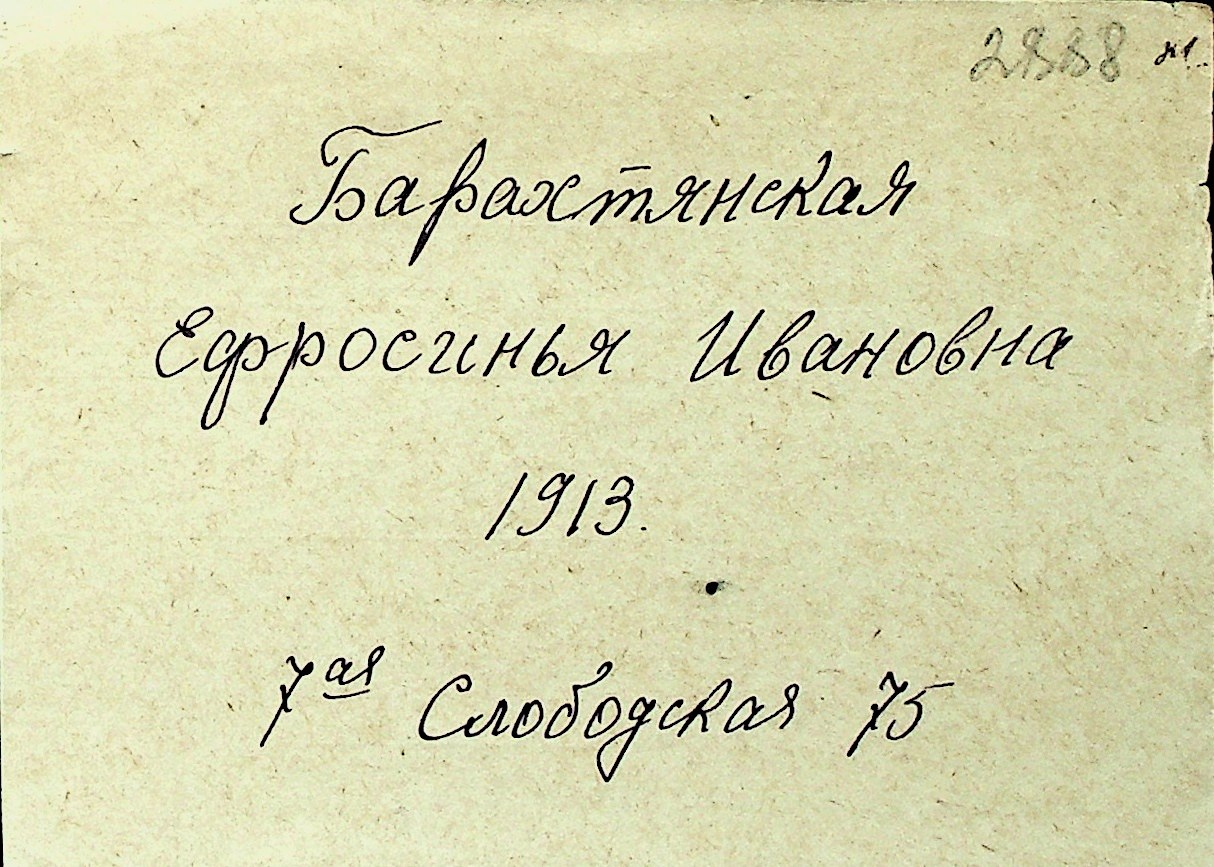 2888
Барахтянская
Ефросинья Ивановна
1913.
7ая Слободская 75